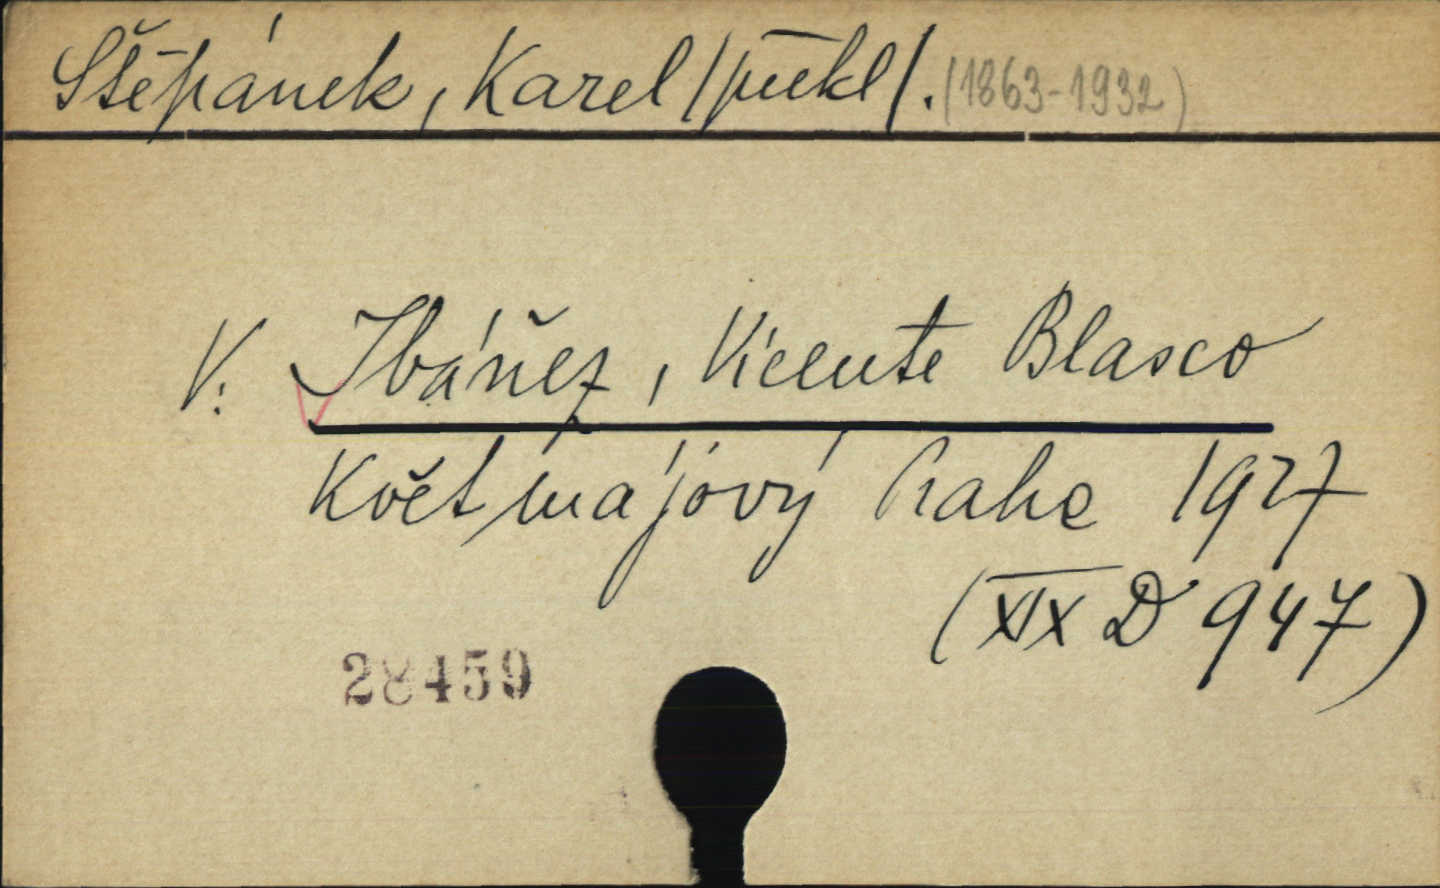 Štěpánek, Karel /překl/. (1863-1932)
V. Ibáñez, Vicente Blasco
Květ májový Praha 1927
(XIX D 947)
28459